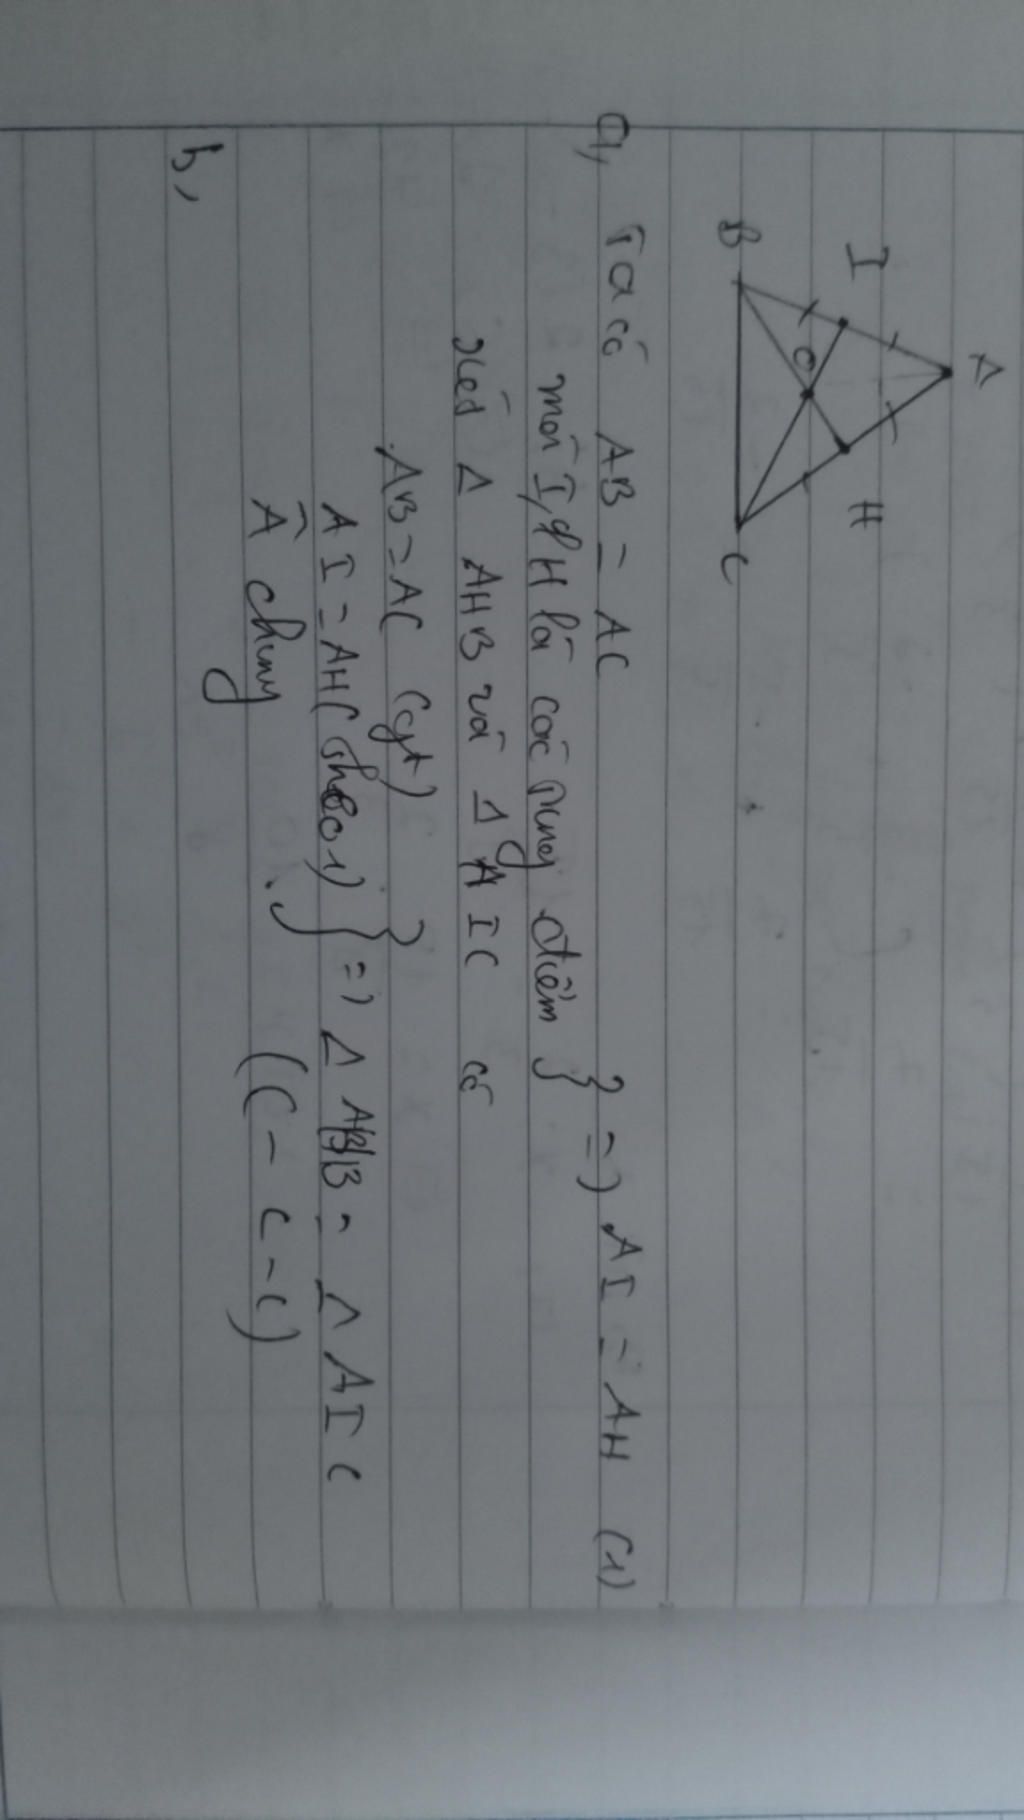 A
I
H
O
B
C
a, Ta có AB = AC
mà I, H là các trung điểm } => AI = AH (1)
Xét Δ AHB và Δ AIC có
AB = AC (gt)
AI = AH ( theo 1) } => Δ AHB = Δ AIC
Â chung (C - C - C)
b,